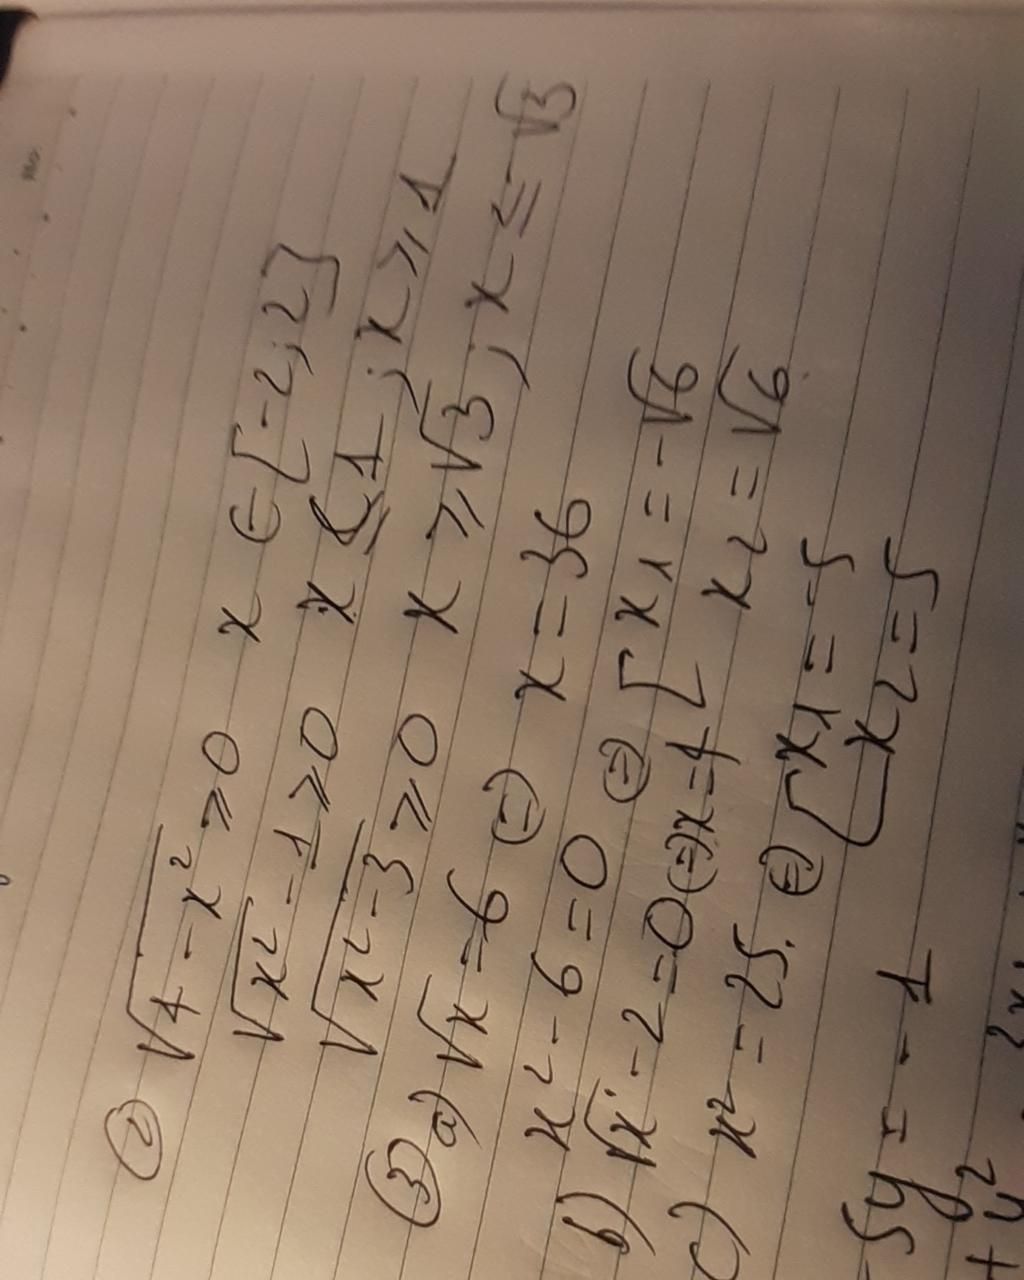 ② √4-x² ≥ 0 x ∈ [-2; 2]
√x² - 1 ≥ 0 x ≤ 1 ; x ≥ 1
√x² - 3 ≥ 0 x ≥ √3 ; x ≤ -√3
③ a) √x = 6 ⇔ x = 36
x² - 6 = 0 ⇔ [ x1 = -√6
x2 = √6
b) √x - 2 = 0 ⇔ x = 4
c) x² = 25. ⇔ [ x1 = -5
x2 = 5
5y = -1
+ y²